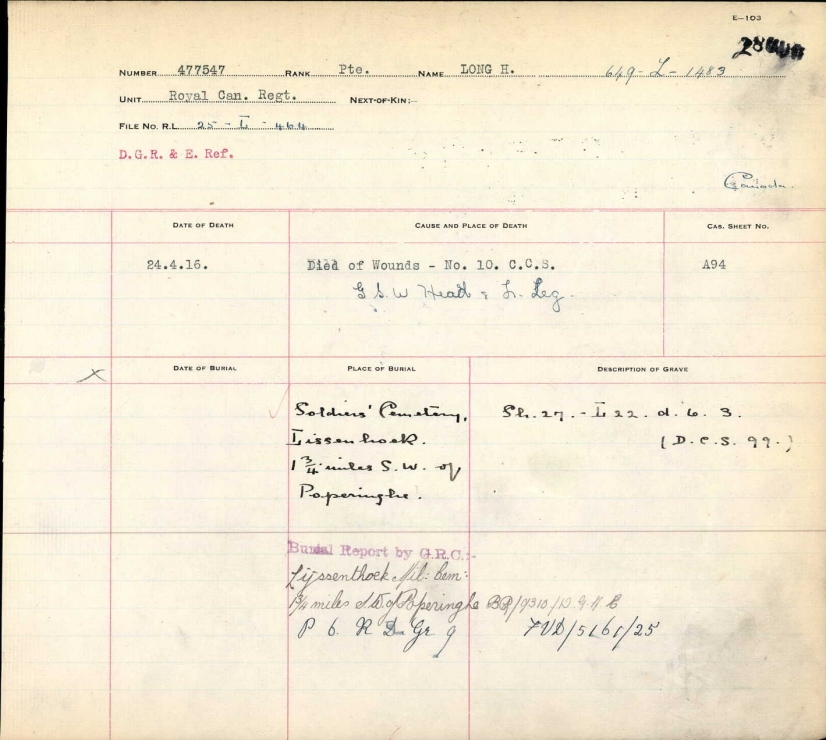 E-103
NUMBER 477547 RANK Pte. NAME LONG H. 649-L-1483
UNIT Royal Can. Regt. NEXT-OF-KIN:-
FILE NO. R.L. 25-L-464
D.G.R. & E. Ref.
Canada.
DATE OF DEATH CAUSE AND PLACE OF DEATH CAS. SHEET NO.
24.4.16. Died of Wounds - No. 10. C.C.S. A94
G.S.W Head & L. Leg.
DATE OF BURIAL PLACE OF BURIAL DESCRIPTION OF GRAVE
Soldiers' Cemetery, Sh. 27. - L 22. d. 6. 3.
Lissenhoek. (D.C.S. 99.)
1 3/4 miles S.W. of
Poperinghe.
Burial Report by G.R.C:-
Lijssenthoek Mil: Cem:
1 3/4 miles S.W. of Poperinghe
P 6. R D Gr 9 7VD/5161/25